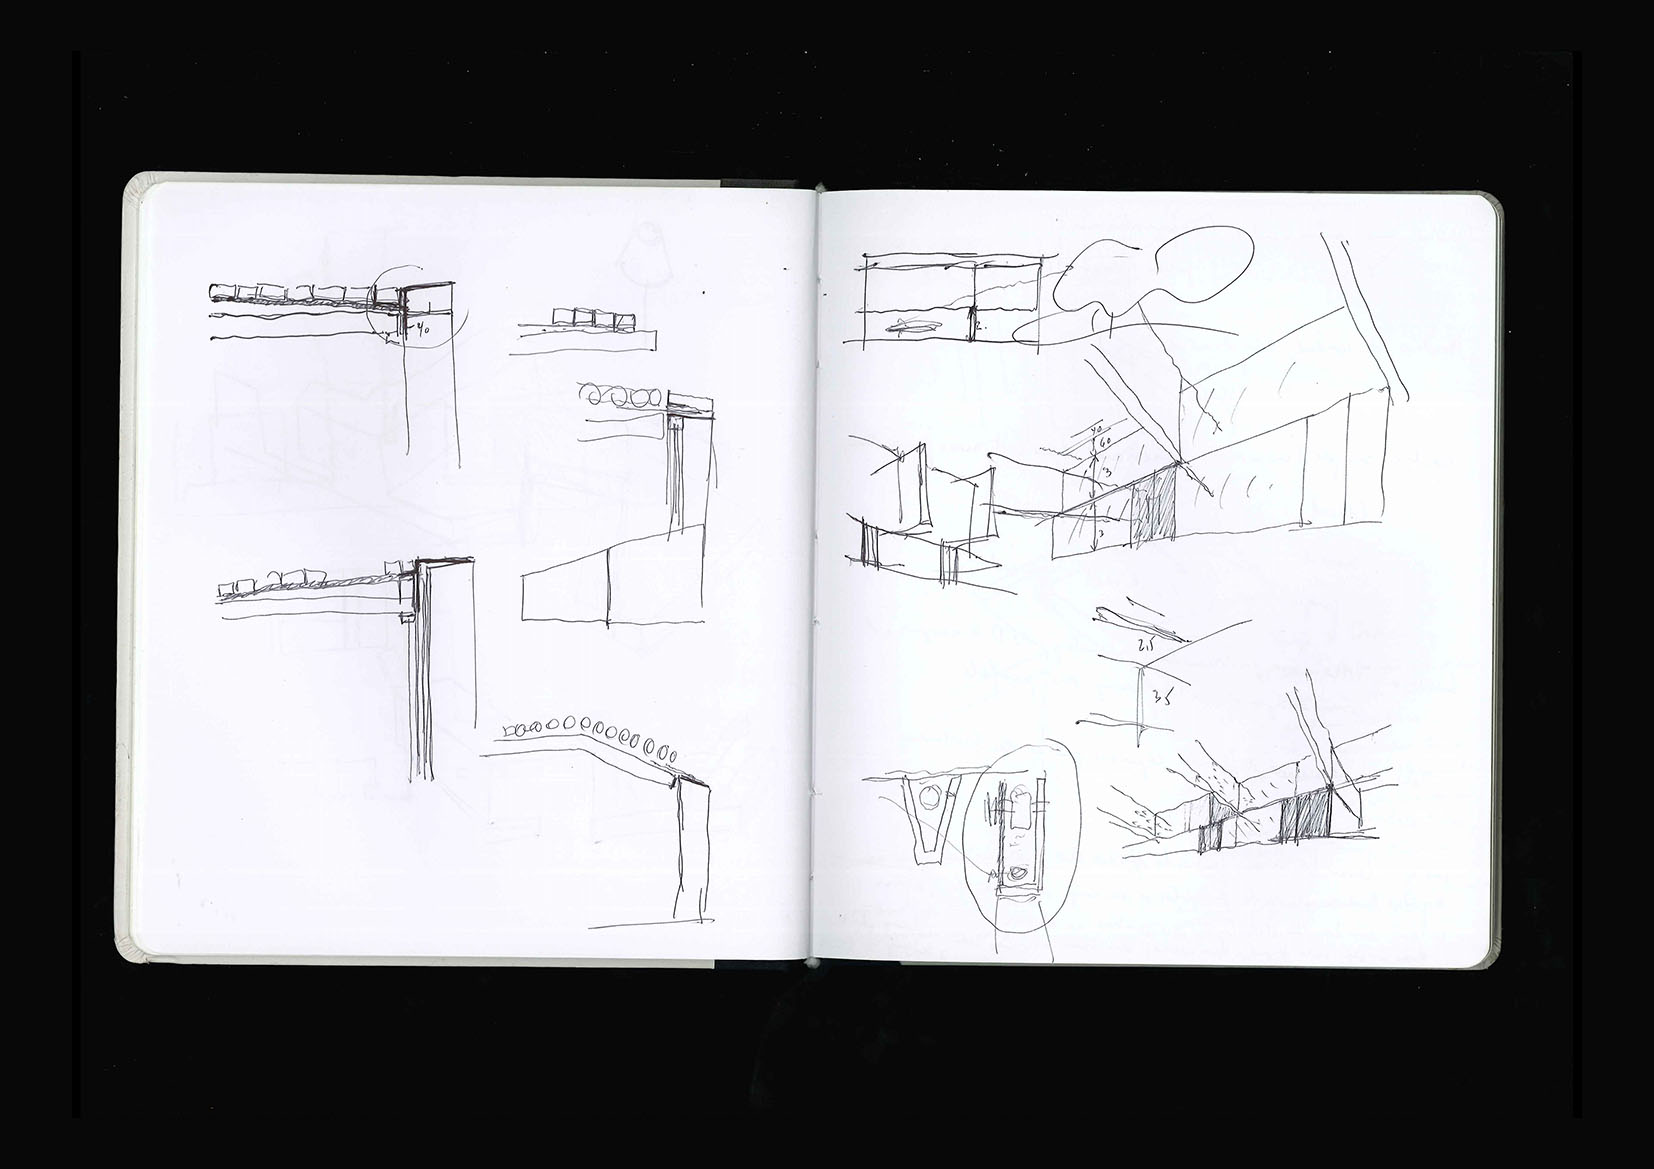 40
2.
40
60
3
3
2,5
35